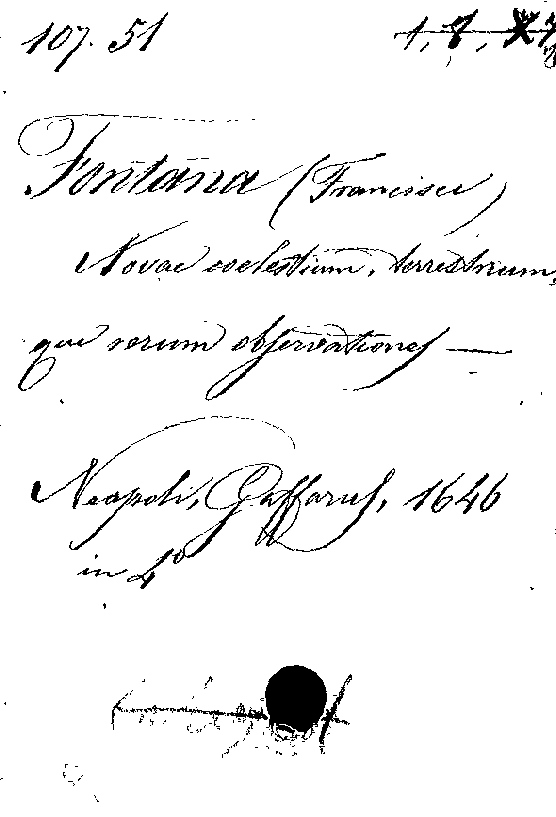 107. 51
Fontana (Francisci)
Novae coelestium, terrestrium,
que rerum observationes —
Neapoli, Gaffarus, 1646
in 4°